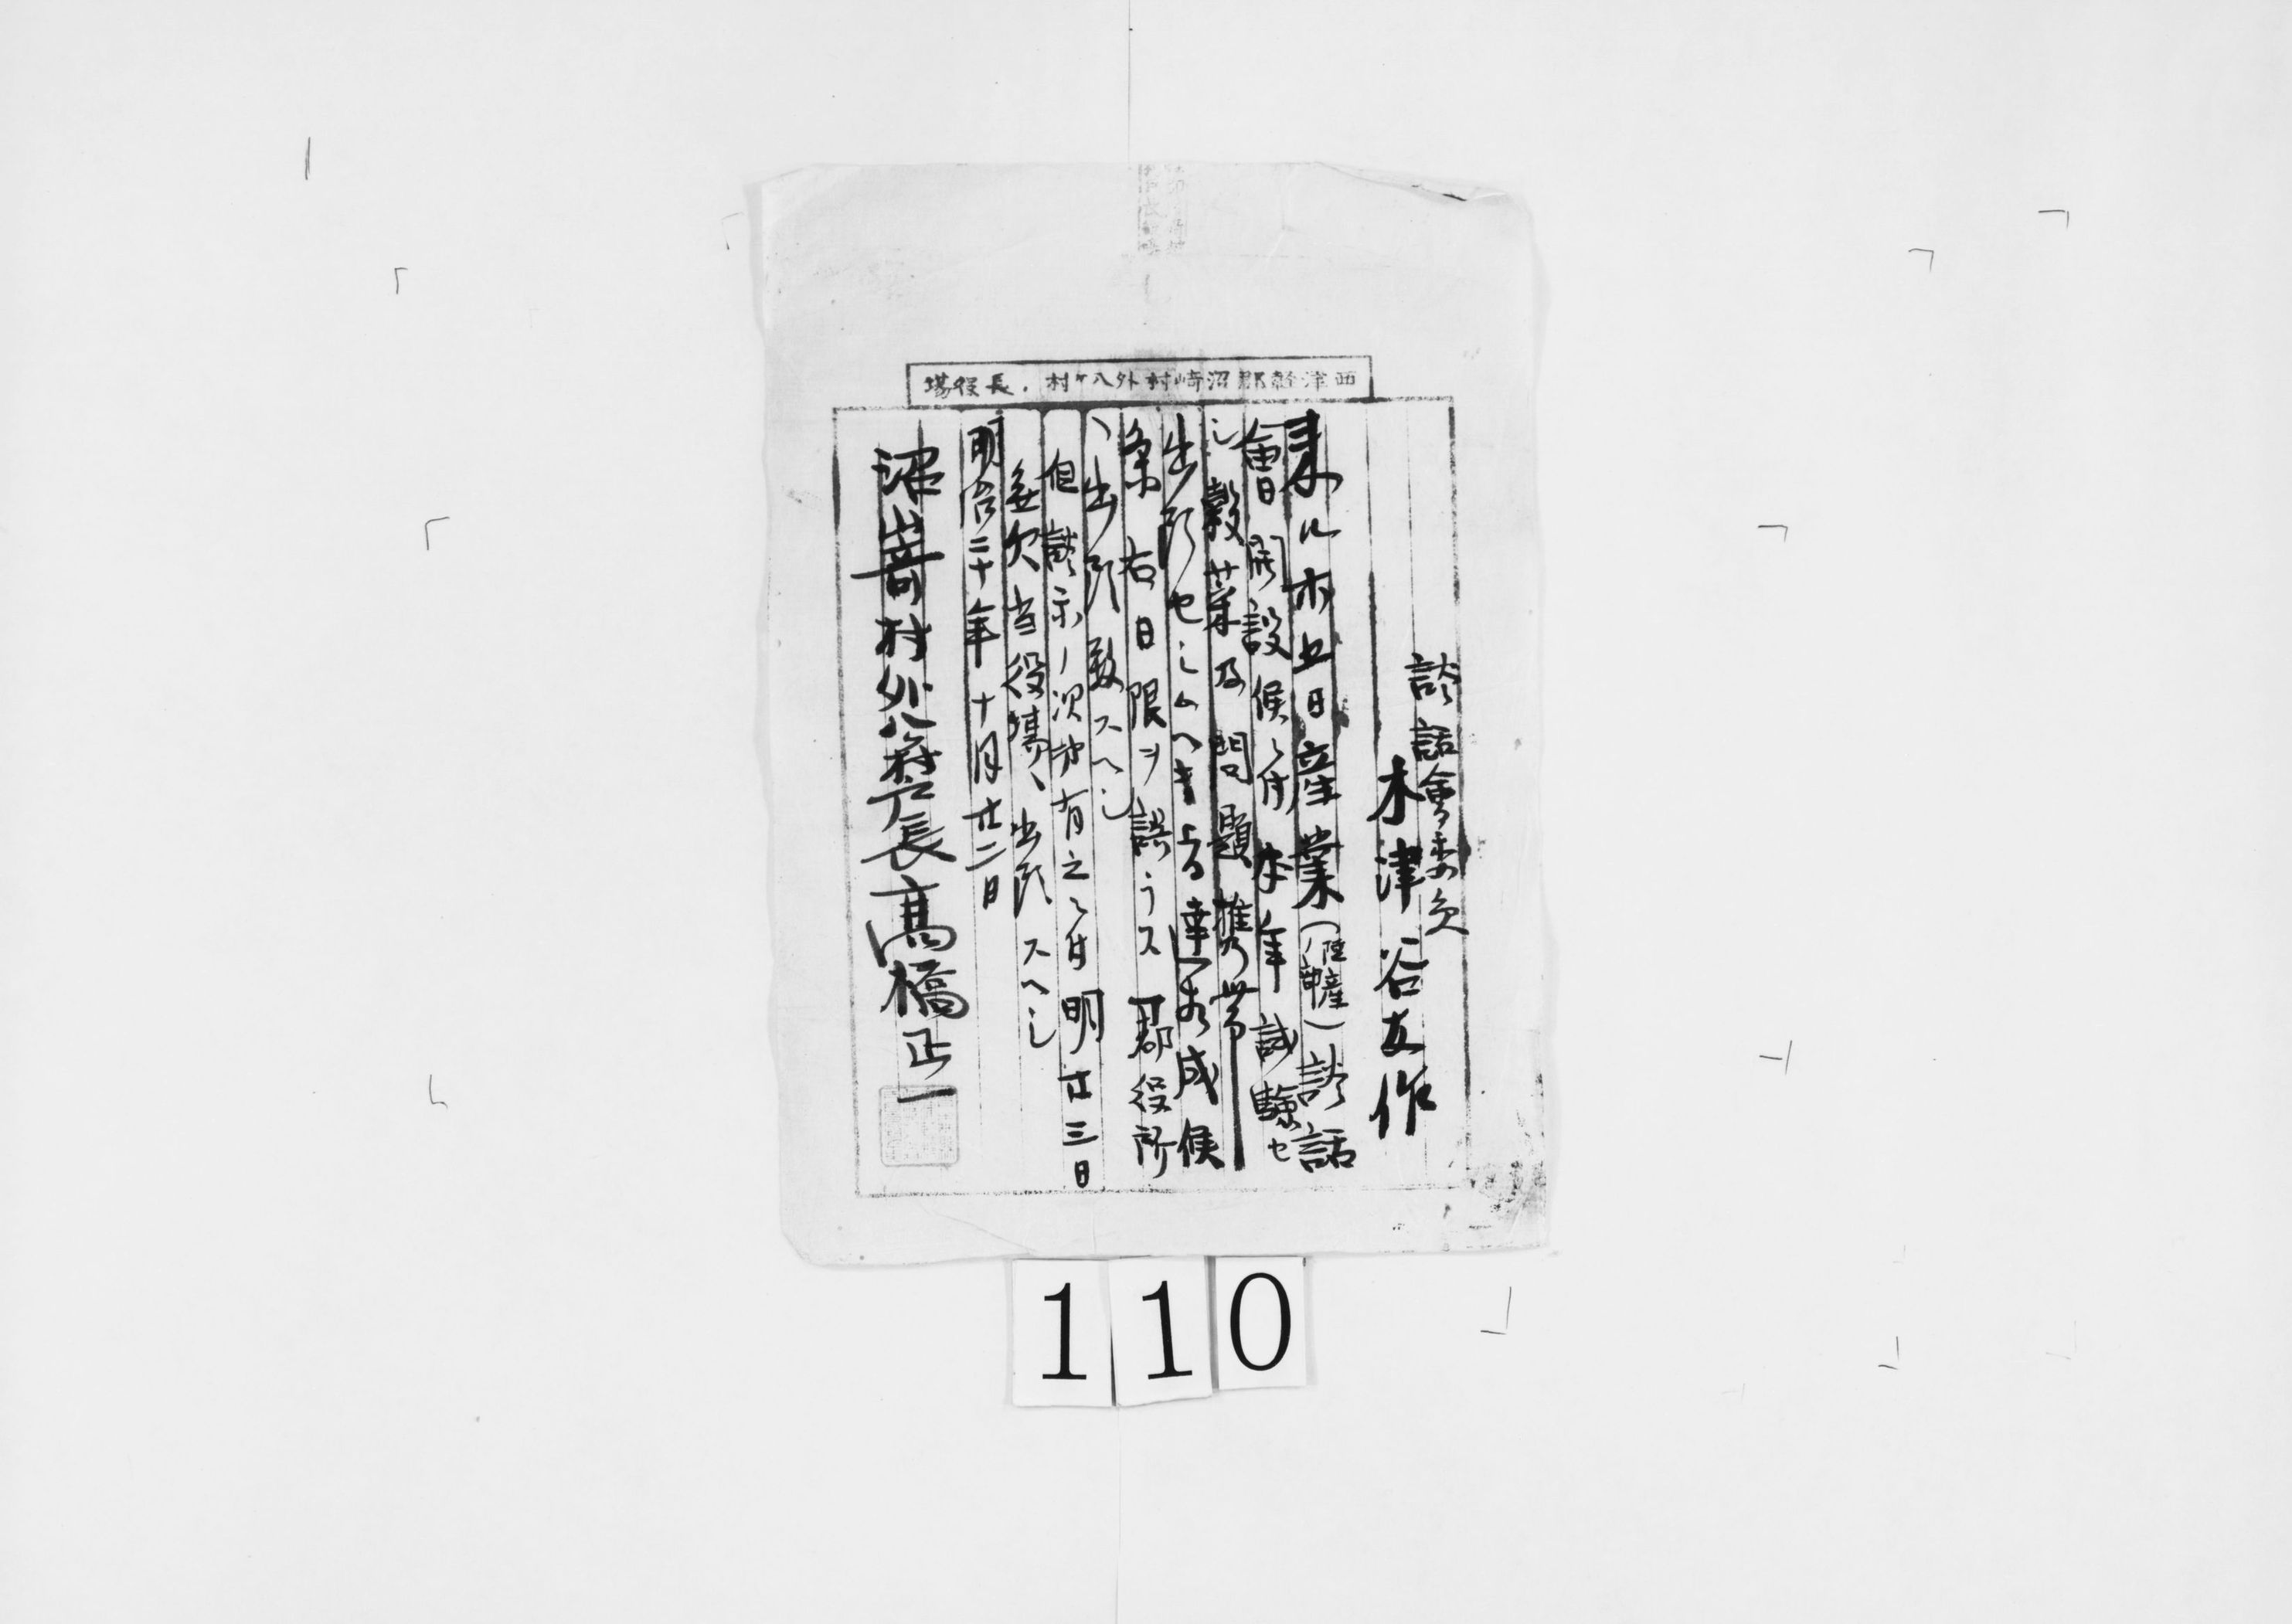 西津軽郡沼崎村外八ケ村戸長役場
談話會委員
木津谷友作
来ル廿五日産業(陸産ノ部)談話
會開設候ニ付本年試驗セ
シ穀菜及問題携帯
出頭セシムヘキ旨達有之候
条右日限ヲ誤ラス郡役所
ヘ出頭致スヘシ
但談示ノ次第有之ニ付明廿三日
無欠当役場ヘ出頭スヘシ
明治二十年十月廿二日
沼嵜村外八ケ村戸長高橋正一
110